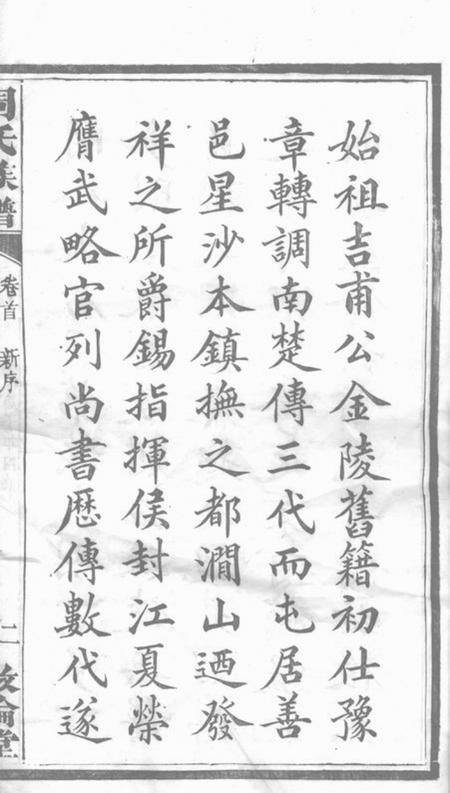 始祖吉甫公金陵舊籍初仕豫
章轉調南楚傳三代而屯居善
邑星沙本鎮撫之都澗山迺發
祥之所爵錫指揮侯封江夏榮
膺武略官列尚書歷傳數代遂
周氏族譜
卷首 新序
二
敦倫堂